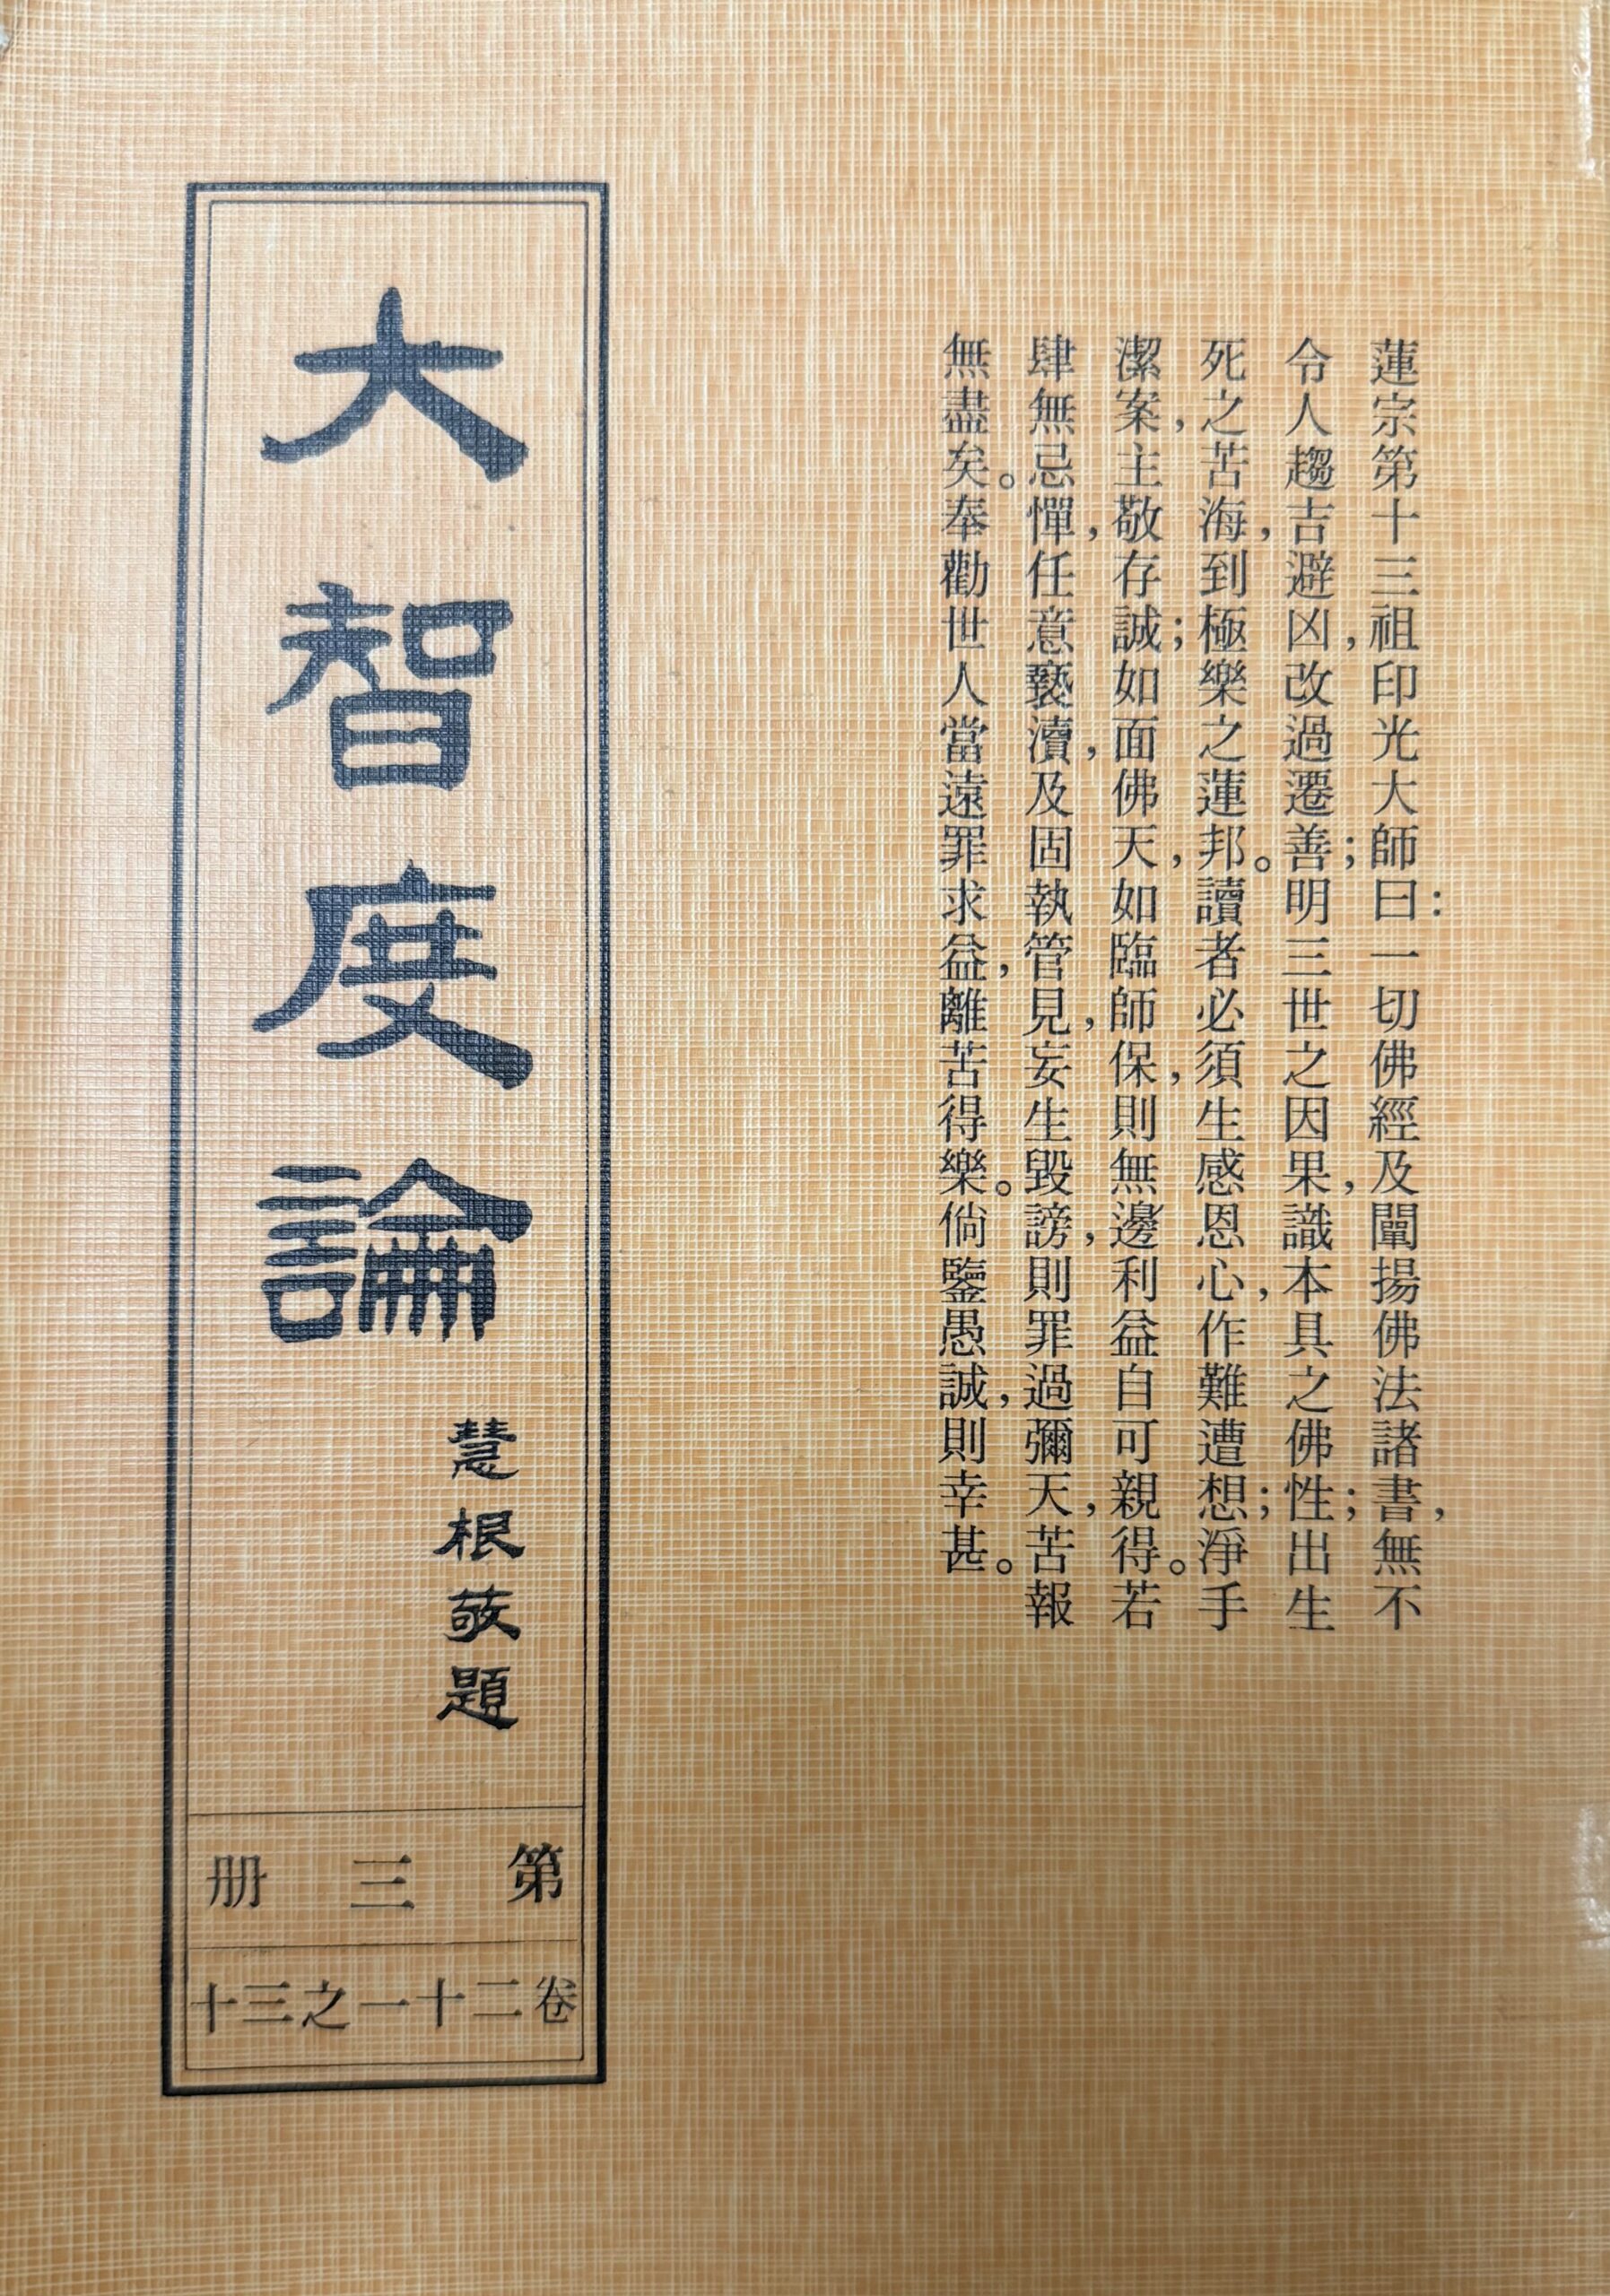 蓮宗第十三祖印光大師曰：一切佛經及闡揚佛法諸書，無不
令人趨吉避凶，改過遷善；明三世之因果，識本具之佛性；出生
死之苦海，到極樂之蓮邦。讀者必須生感恩心，作難遭想；淨手
潔案，主敬存誠；如面佛天，如臨師保，則無邊利益自可親得。若
肆無忌憚，任意褻瀆，及固執管見，妄生毀謗，則罪過彌天，苦報
無盡矣。奉勸世人當遠罪求益，離苦得樂。倘鑒愚誠，則幸甚。
大智度論
慧根敬題
第三册
卷二十一之三十